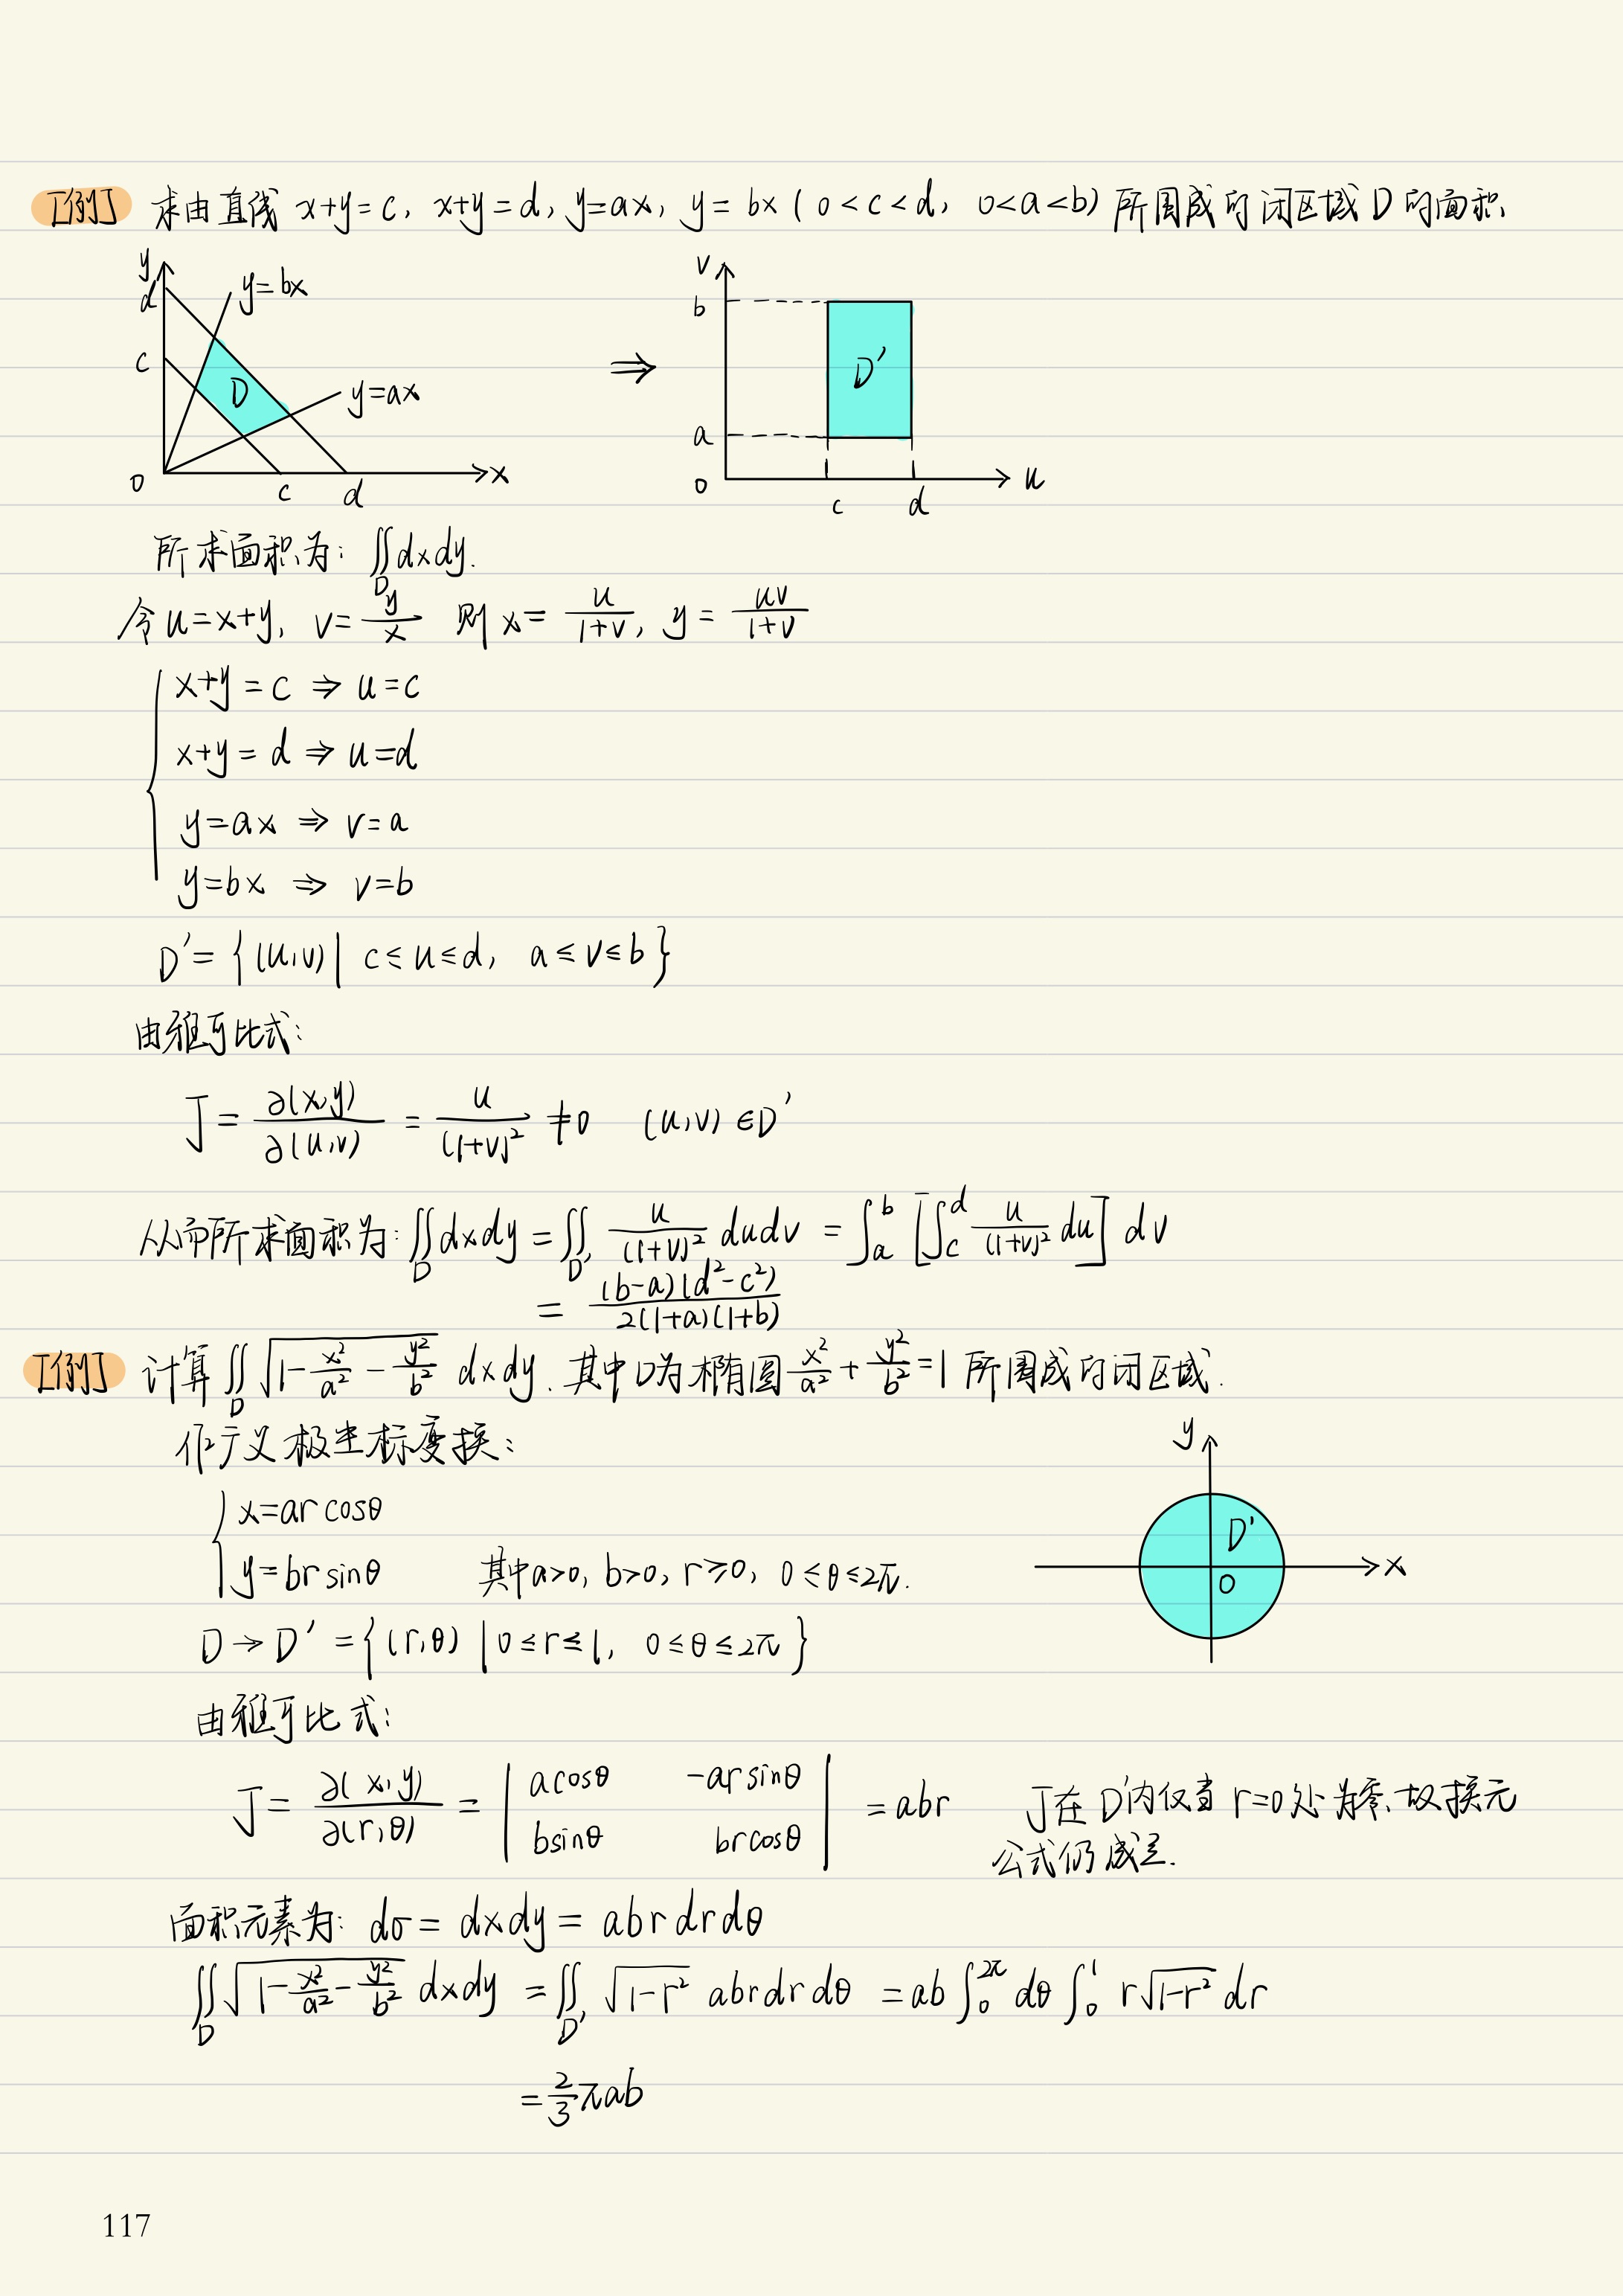 [例] 求由直线 x+y=c, x+y=d, y=ax, y=bx (0<c<d, 0<a<b) 所围成的闭区域 D 的面积.
y d c y=bx D y=ax 0 c d x
⇒
v b a D' 0 c d u
所求面积为: ∬_D dxdy.
令 u=x+y, v=y/x 则 x=u/(1+v), y=uv/(1+v)
x+y=c ⇒ u=c
x+y=d ⇒ u=d
y=ax ⇒ v=a
y=bx ⇒ v=b
D'={(u,v)| c≤u≤d, a≤v≤b}
由雅可比式:
J=∂(x,y)/∂(u,v)=u/(1+v)²≠0 (u,v)∈D'
从而所求面积为: ∬_D dxdy=∬_D' u/(1+v)² dudv=∫_a^b [∫_c^d u/(1+v)² du] dv
=(b-a)(d²-c²)/2(1+a)(1+b)
[例] 计算 ∬_D √(1-x²/a²-y²/b²) dxdy. 其中 D 为椭圆 x²/a²+y²/b²=1 所围成的闭区域.
作广义极坐标变换:
x=arcosθ
y=brsinθ 其中 a>0, b>0, r≥0, 0≤θ≤2π.
y D' 0 x
D→D'={(r,θ)|0≤r≤1, 0≤θ≤2π}
由雅可比式:
J=∂(x,y)/∂(r,θ)=|acosθ -arsinθ; bsinθ brcosθ|=abr J在D'内仅当 r=0处为零,故换元
公式仍成立.
面积元素为: dσ=dxdy=abrdrdθ
∬_D √(1-x²/a²-y²/b²) dxdy=∬_D' √(1-r²) abrdrdθ=ab∫_0^2π dθ∫_0^1 r√(1-r²) dr
=2/3 πab
117